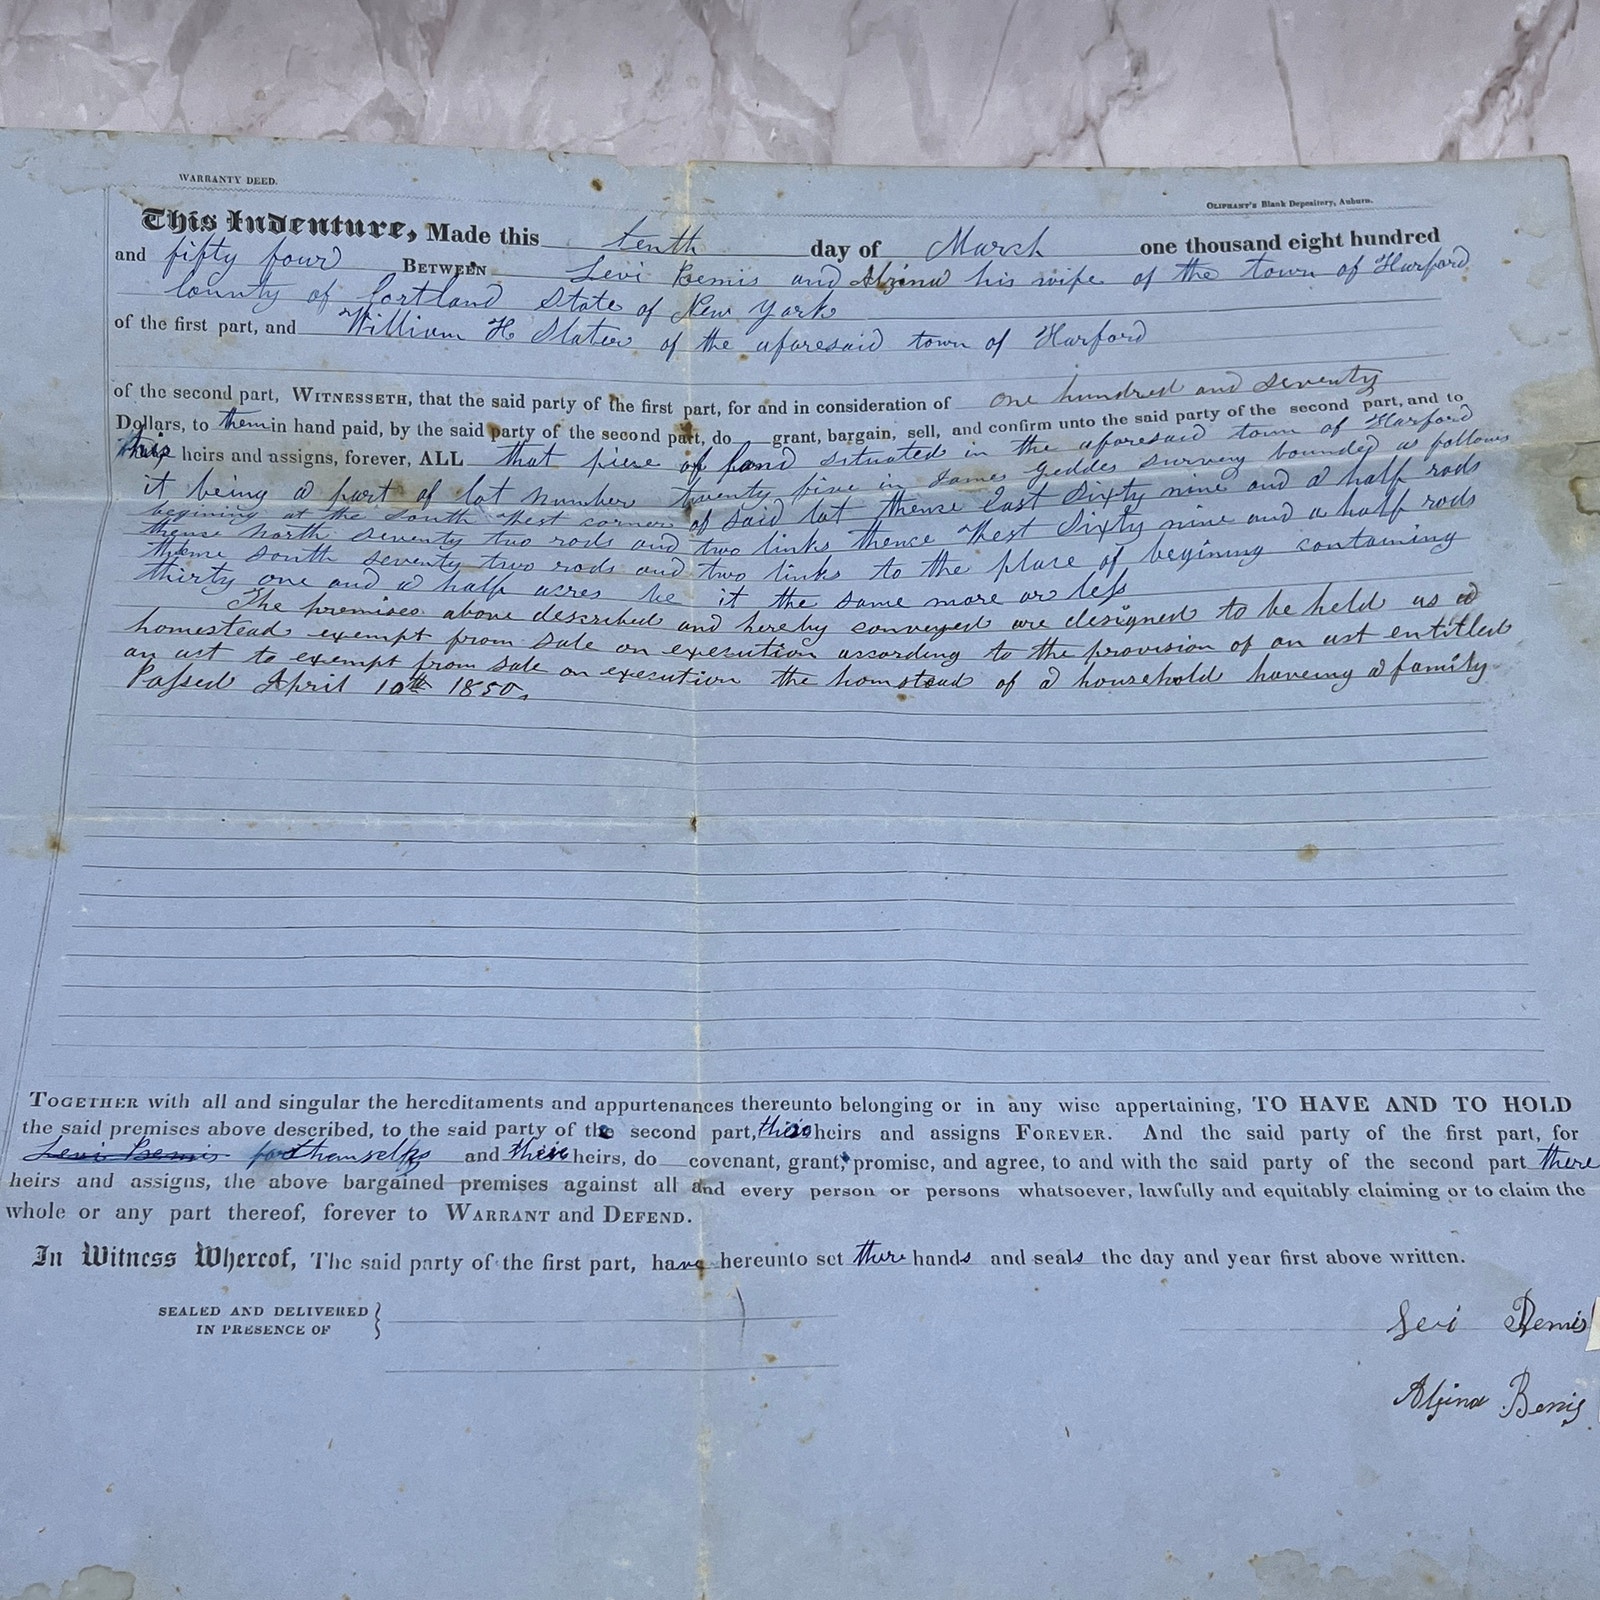 WARRANTY DEED.
OLIPHANT'S Blank Depository, Auburn.
This Indenture, Made this tenth day of March one thousand eight hundred
and fifty four BETWEEN Levi Bemis and Alzina his wife of the town of Harford
County of Cortland State of New York
of the first part, and William H Slater of the aforesaid town of Harford
of the second part, WITNESSETH, that the said party of the first part, for and in consideration of one hundred and seventy
Dollars, to them in hand paid, by the said party of the second part, do grant, bargain, sell, and confirm unto the said party of the second part, and to
heirs and assigns, forever, ALL that piese of land situated in the aforesaid town of Harford
it being a part of lot number twenty five in James Geddes survey bounded as follows
begining at the South West corner of said lot thense East Sixty nine and a half rods
thense north seventy two rods and two links thence West Sixty nine and a half rods
thense south seventy two rods and two links to the plase of begining containing
thirty one and a half acres be it the same more or less
The premises above described and hereby conveyed are designed to be held as a
homestead exempt from sale on execution according to the provision of an act entitled
an act to exempt from sale on execution the homstead of a household haveing a family
Passed April 10th 1850,
TOGETHER with all and singular the hereditaments and appurtenances thereunto belonging or in any wise appertaining, TO HAVE AND TO HOLD
the said premises above described, to the said party of the second part, their heirs and assigns FOREVER. And the said party of the first part, for
Levi Bemis for themselfs and their heirs, do covenant, grant, promise, and agree, to and with the said party of the second part there
heirs and assigns, the above bargained premises against all and every person or persons whatsoever, lawfully and equitably claiming or to claim the
whole or any part thereof, forever to WARRANT and DEFEND.
In Witness Whereof, The said party of the first part, have hereunto set there hands and seals the day and year first above written.
SEALED AND DELIVERED
IN PRESENCE OF
Levi Bemis
Alzina Bemis